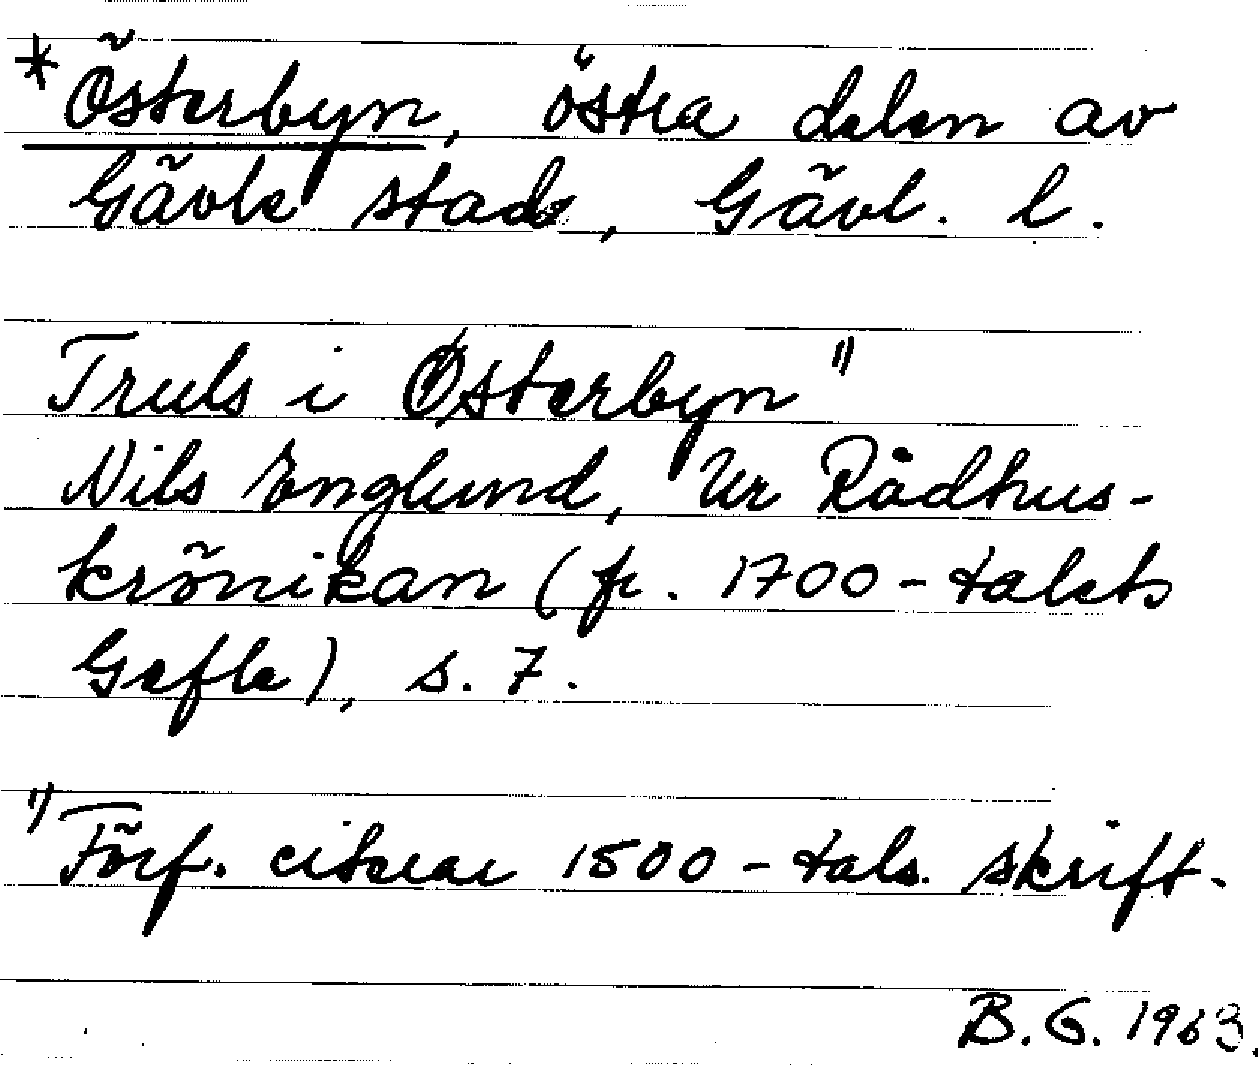 *Österbyn, östra delen av
Gävle stad, Gävl. l.
Truls i Østerbyn 1)
Nils Englund, Ur Rådhus-
krönikan (fr. 1700-talets
Gefle), s. 7.
1) Förf. citerar 1500-tals skrift.
B.G. 1963.